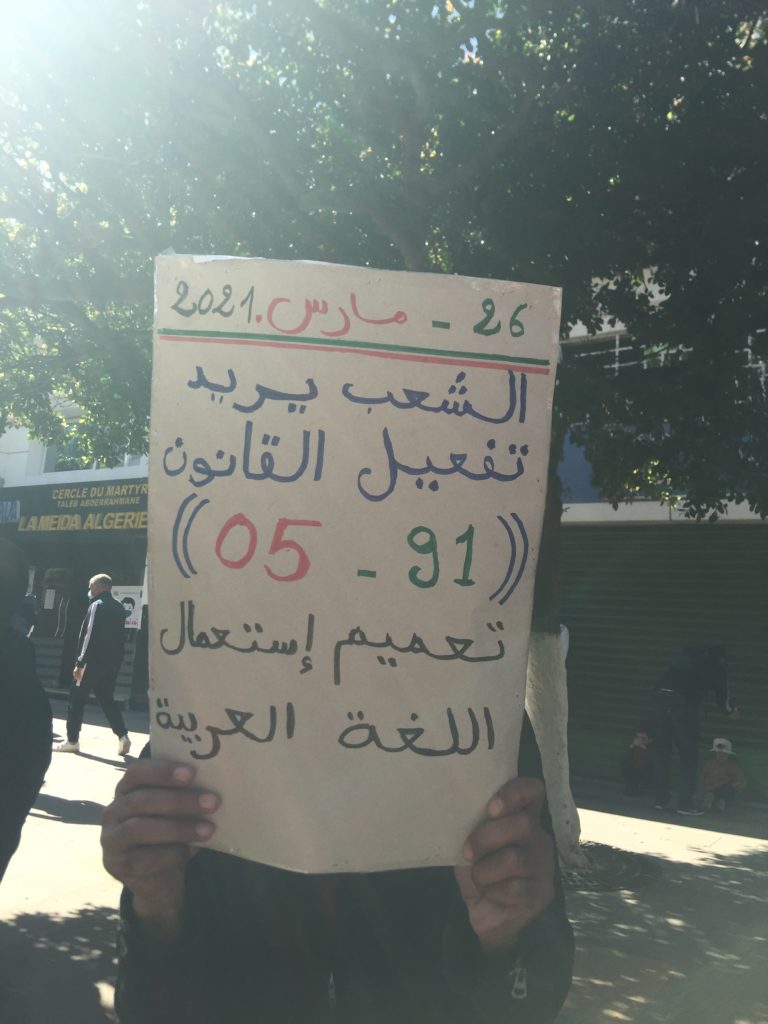 26 - مارس.2021
الشعب يريد
تفعيل القانون
((91 - 05))
تعميم إستعمال
اللغة العربية
CERCLE DU MARTYR
TALEB ABDERRAHMANE
LAMEIDA ALGERIE